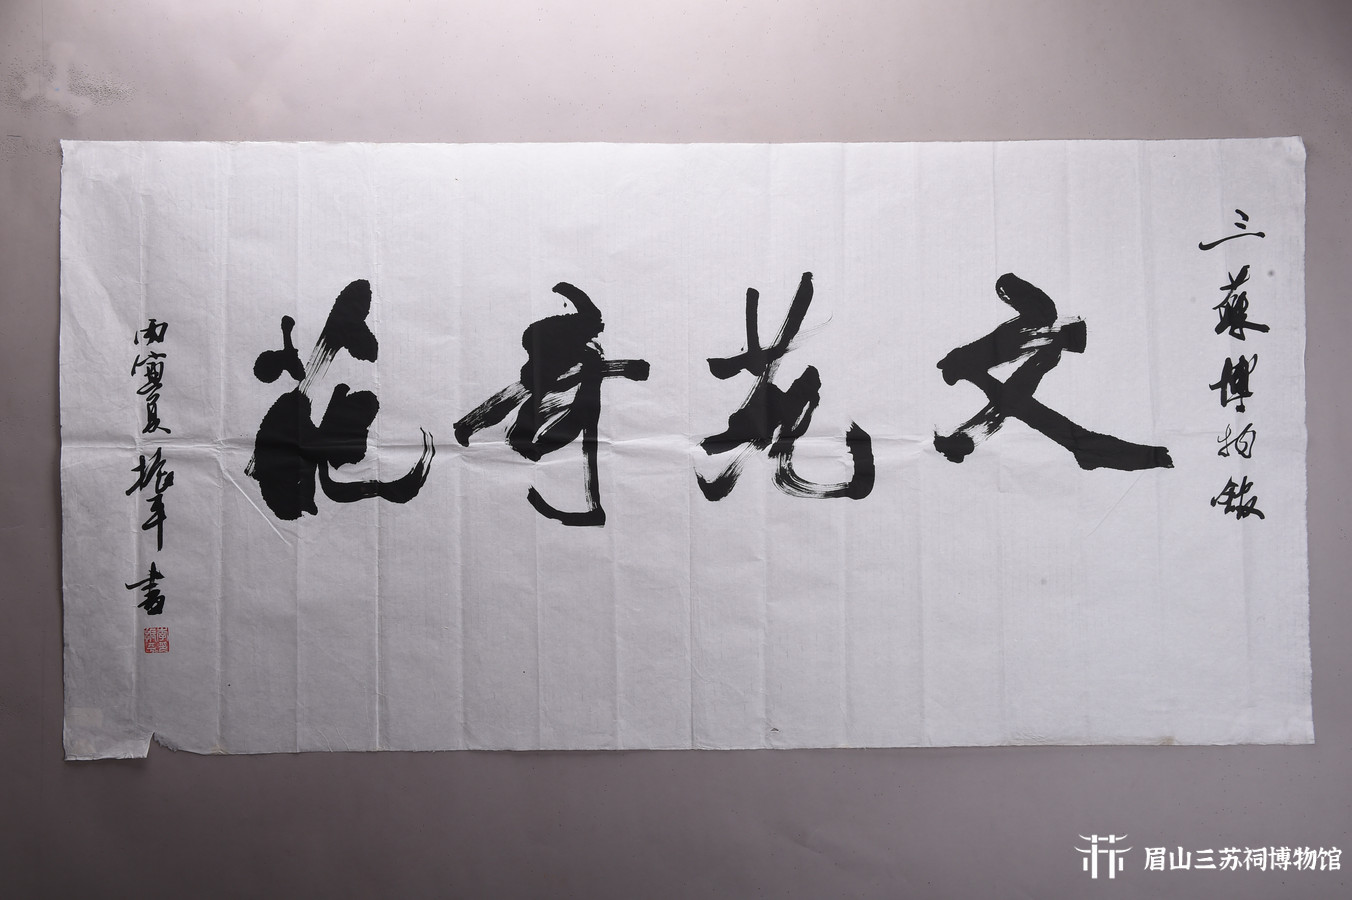 三蘇博物館
文苑奇葩
丙寅夏 振華 書
眉山三苏祠博物馆